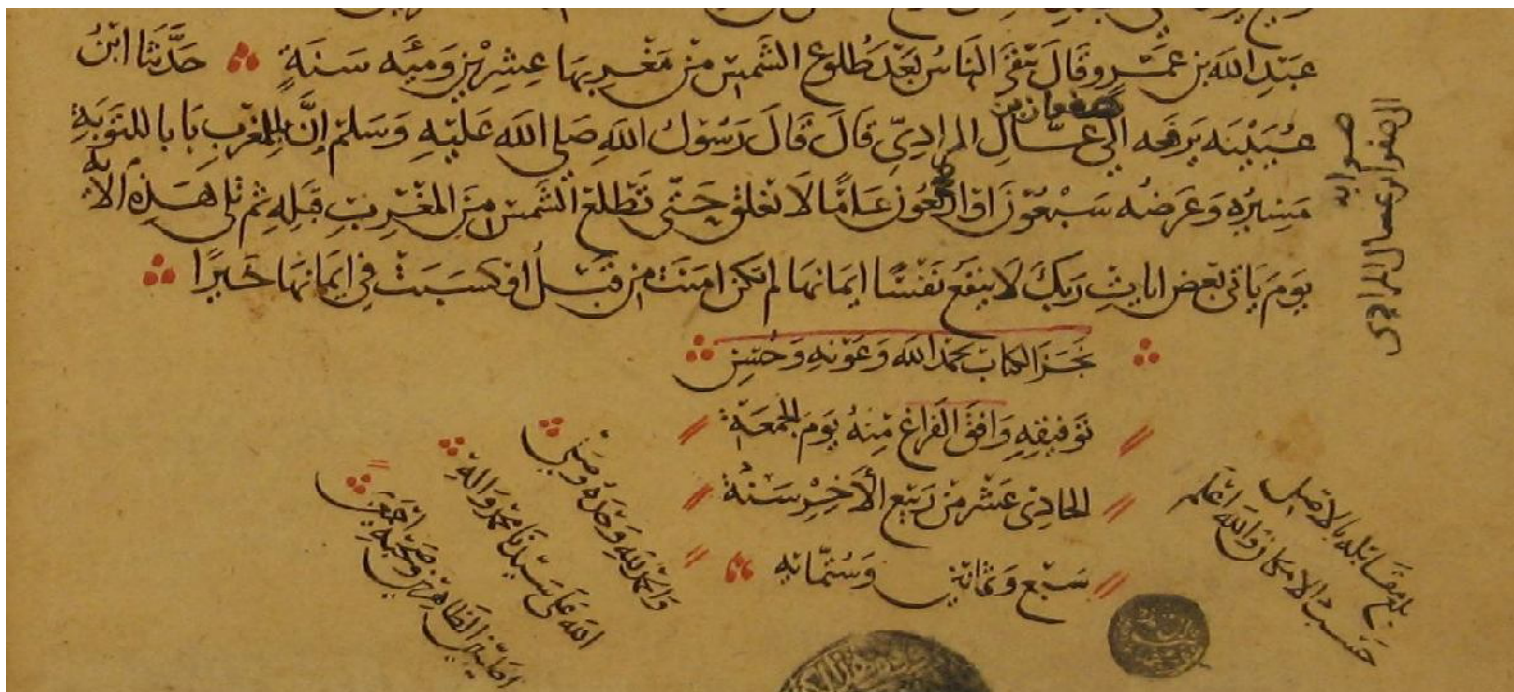 عبد الله بن عمرو قال يبقى الناس بعد طلوع الشمس من مغربها عشرين ومئه سنة حدثنا ابن
عيينه يرفعه الي صفوان بن عسال المرادي قال قال رسول الله صلى الله عليه وسلم إن بالمغرب بابا للتوبة
مسيره وعرضه سبعون او اربعون عاما لا تغلق حتى تطلع الشمس من المغرب قبله ثم تلى هذه الآيه
يوم ياتي بعض ايات ربك لا ينفع نفسا ايمانها لم تكن امنت من قبل او كسبت في ايمانها خيرا
صوابه
الصفوان عسال المرادي
نجز الكتاب بحمد الله وعونه وحسن
توفيقه وافق الفراغ منه يوم الجمعة
الحادي عشر من ربيع الأخر سنة
سبع وثمانين وستمايه
والحمد لله وحده وصلى
الله على سيدنا محمد واله
الطيبين الطاهرين وصحبه اجمعين
بلغ مقابله بالاصل
حسب الامكان والله اعلم